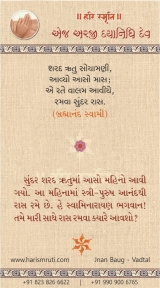 ॥ હરિ સ્મૃતિ ॥
એજ અરજી દયાનિધિ દેવ
શરદ ઋતુ સોયામણી,
આવ્યો આસો માસ;
એ રતે વાલમ આવીયે,
રમવા સુંદર રાસ.
(બ્રહ્માનંદ સ્વામી)
સુંદર શરદ ઋતુમાં આસો મહિનો આવી
ગયો. આ મહિનામાં સ્ત્રી-પુરુષ આનંદથી
રાસ રમે છે. હે સ્વામિનારાયણ ભગવાન!
તમે મારી સાથે રાસ રમવા ક્યારે આવશો?
www.harismruti.com Jnan Baug - Vadtal
+91 823 826 6622 | +91 990 900 6765